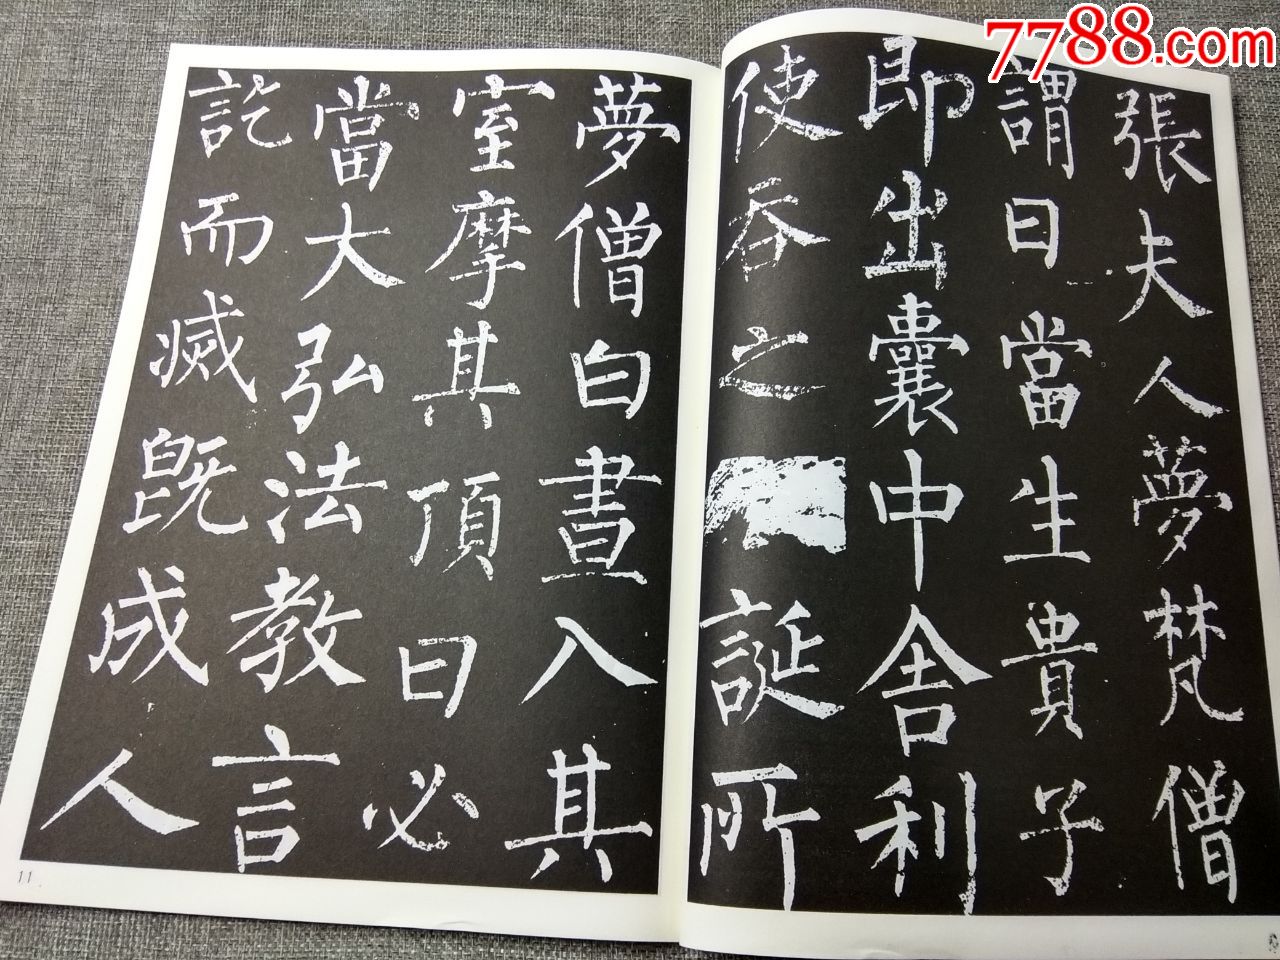 7788.com
張夫人夢梵僧
謂曰當生貴子
即出囊中舍利
使吞之誕所
夢僧白晝入其
室摩其頂曰必
當大弘法教言
訖而滅既成人
11